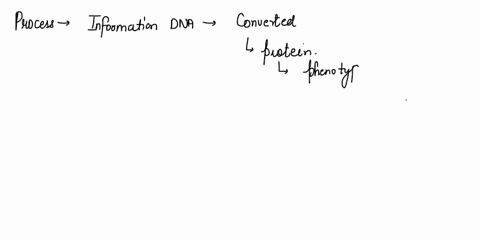 Process → Information DNA → Converted
↳ protein.
↳ phenoty